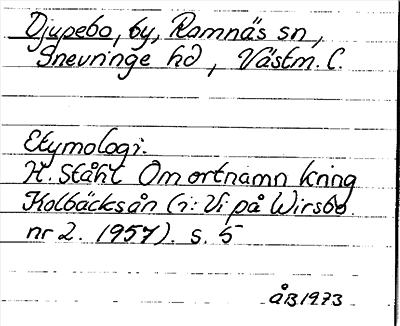 Djupebo, by, Ramnäs sn,
Snevringe hd, Västm. l.
Etymologi.
H. Ståhl Om ortnamn kring
Kolbäcksån (i: Vi på Wirsbo.
nr 2. 1957). s. 5
ÅB1973